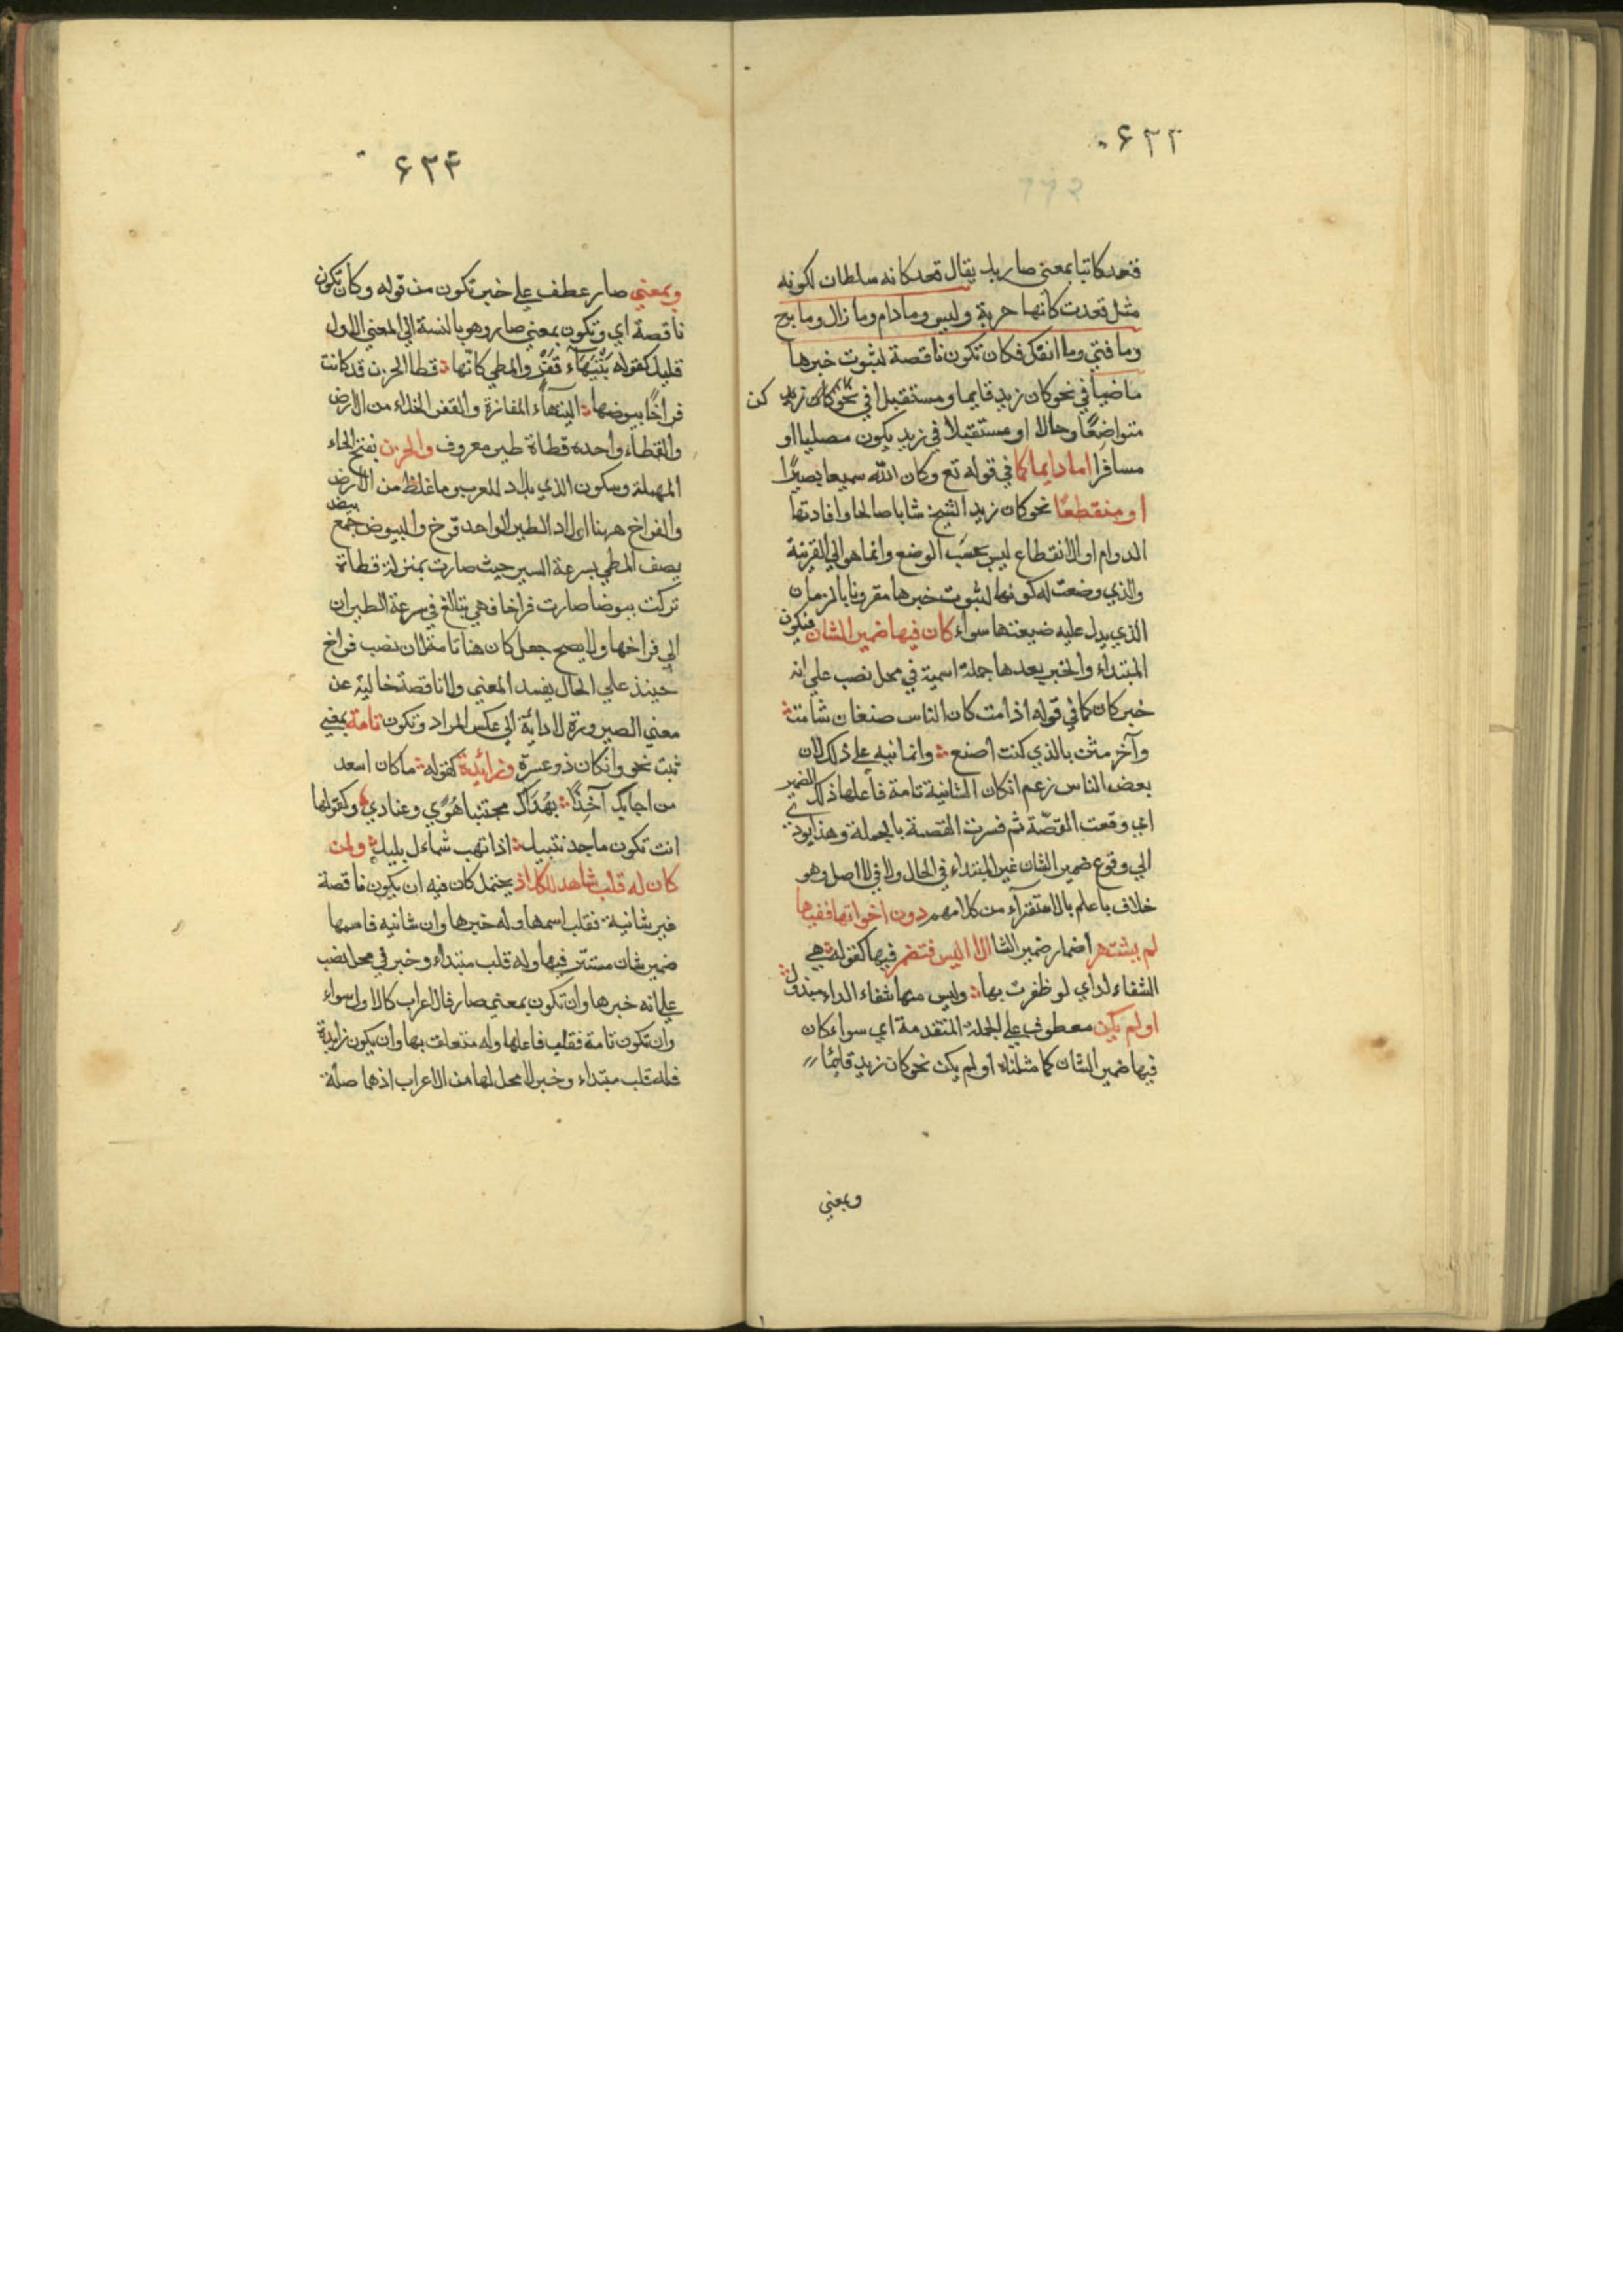 ۶۳۳
فقعد كاتبا بمعنى صار بل يقال قعد كانه سلطان لكونه
مثل قعدت كانها حربة وليس ومادام ومازال وما برح
وما فتي وما انفك فكان تكون ناقصة لثبوت خبرها
ماضيا في نحو كان زيد قايما ومستقبلا في نحو كان زيد كن
متواضعًا وحالا او مستقبلا في زيد يكون مصليا او
مسافرا اما دايما كما في قوله تع وكان الله سميعا بصيرًا
او منقطعًا نحو كان زيد الشيخ شابا صالحا وافادتها
الدوام او الانقطاع ليس بحسب الوضع وانما هو الي القرينة
والذي وضعت له كونها لثبوت خبرها مقرونا بالزمان
الذي يدل عليه صيغتها سواء كان فيها ضمير الشان فيكون
المبتداء والخبر بعدها جملة اسمية في محل نصب علي انه
خبر كان كما في قوله اذا مت كان الناس صنفان شامت
وآخر مثن بالذي كنت اصنع وانما نبه علي ذلك لان
بعض الناس زعم ان كان الشانية تامة فاعلها ذلك الضمير
اي وقعت القصّة ثم فسرت القصة بالجملة وهذا يودي
الي وقوع ضمير الشان غير المبتداء في الحال ولا في الاصل وهو
خلاف ما علم بالاستقراء من كلامهم دون اخواتها ففيها
لم يشتهر اضمار ضمير الشا الا ليس فتضمر فيها كقوله هي
الشفاء لداي لو ظفرت بها وليس منها شفاء الداء مبذول
او لم يكن معطوف علي الجملة المتقدمة اي سواء كان
فيها ضمير الشان كما مثلناه او لم يكن نحو كان زيد قايمًا
وبمعني
۶۳۴
وبمعني صار عطف علي خبر تكون من قوله وكان تكون
ناقصة اي وتكون بمعني صار وهو بالنسبة الي المعني الاول
قليل كقوله بتيهاء قفر والمطي كانّها قطا الحزن قد كانت
فراخًا بيوضها التيهاء المفازة والقفر الخلاء من الارض
والقطاء واحده قطاة طير معروف والحزن بفتح الحاء
المهملة وسكون الذي بلاد للعرب وما غلظ من الارض
والفراخ ههنا اولاد الطير الواحد فرخ والبيوض جمع بيض
يصف المطي بسرعة السير حيث صارت بمنزلة قطاة
تركت بيوضا صارت فراخا فهي تبالغ في سرعة الطيران
الي فراخها ولا يصح جعل كان هنا تامة لان نصب فراخ
حينئذ علي الحال يفسد المعني ولا ناقصة خالية عن
معني الصيرورة لادائه الي عكس المراد وتكون تامة بمعني
ثبت نحو وان كان ذو عسرة وزائدة كقوله ما كان اسعد
من اجابك آخذًا بهداك مجتنبا هوًي وعنادي وكقولها
انت تكون ماجد نبيل اذا تهب شمأل بليل ولمن
كان له قلب شاهد للكل اذ يحتمل كان فيه ان يكون ناقصة
غير شانية فقلب اسمها وله خبرها وان شانيه فاسمها
ضمير شان مستتر فيها وله قلب مبتداء وخبر في محل نصب
علي انه خبرها وان تكون بمعني صار فالاعراب كالاول سواء
وان تكون تامة فقلب فاعلها وله متعلق بها وان يكون زايدة
فله قلب مبتداء وخبر لا محل لها من الاعراب اذهما صلة